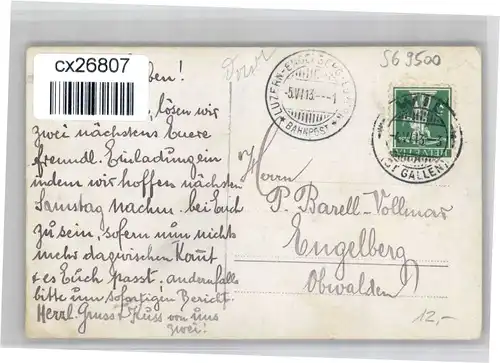 cx26807
ben!
lösen wir
zwei nächstens Euere
freundl. Einladung ein
indem wir hoffen nächsten
Samstag nachm. bei Euch
zu sein, sofern nun nichts
mehr dazwischen kommt
& es Euch passt, andernfalls
bitte um sofortigen Bericht.
Herzl. Gruss & Kuss von uns
zwei!
LUZERN-ENGELBERG-LUZERN
5.VI 13.--1
BAHNPOST
S6 9500
HELVETIA
(ST GALLEN)
Herrn
P. Barell-Vollmar
Engelberg
Obwalden
12,-